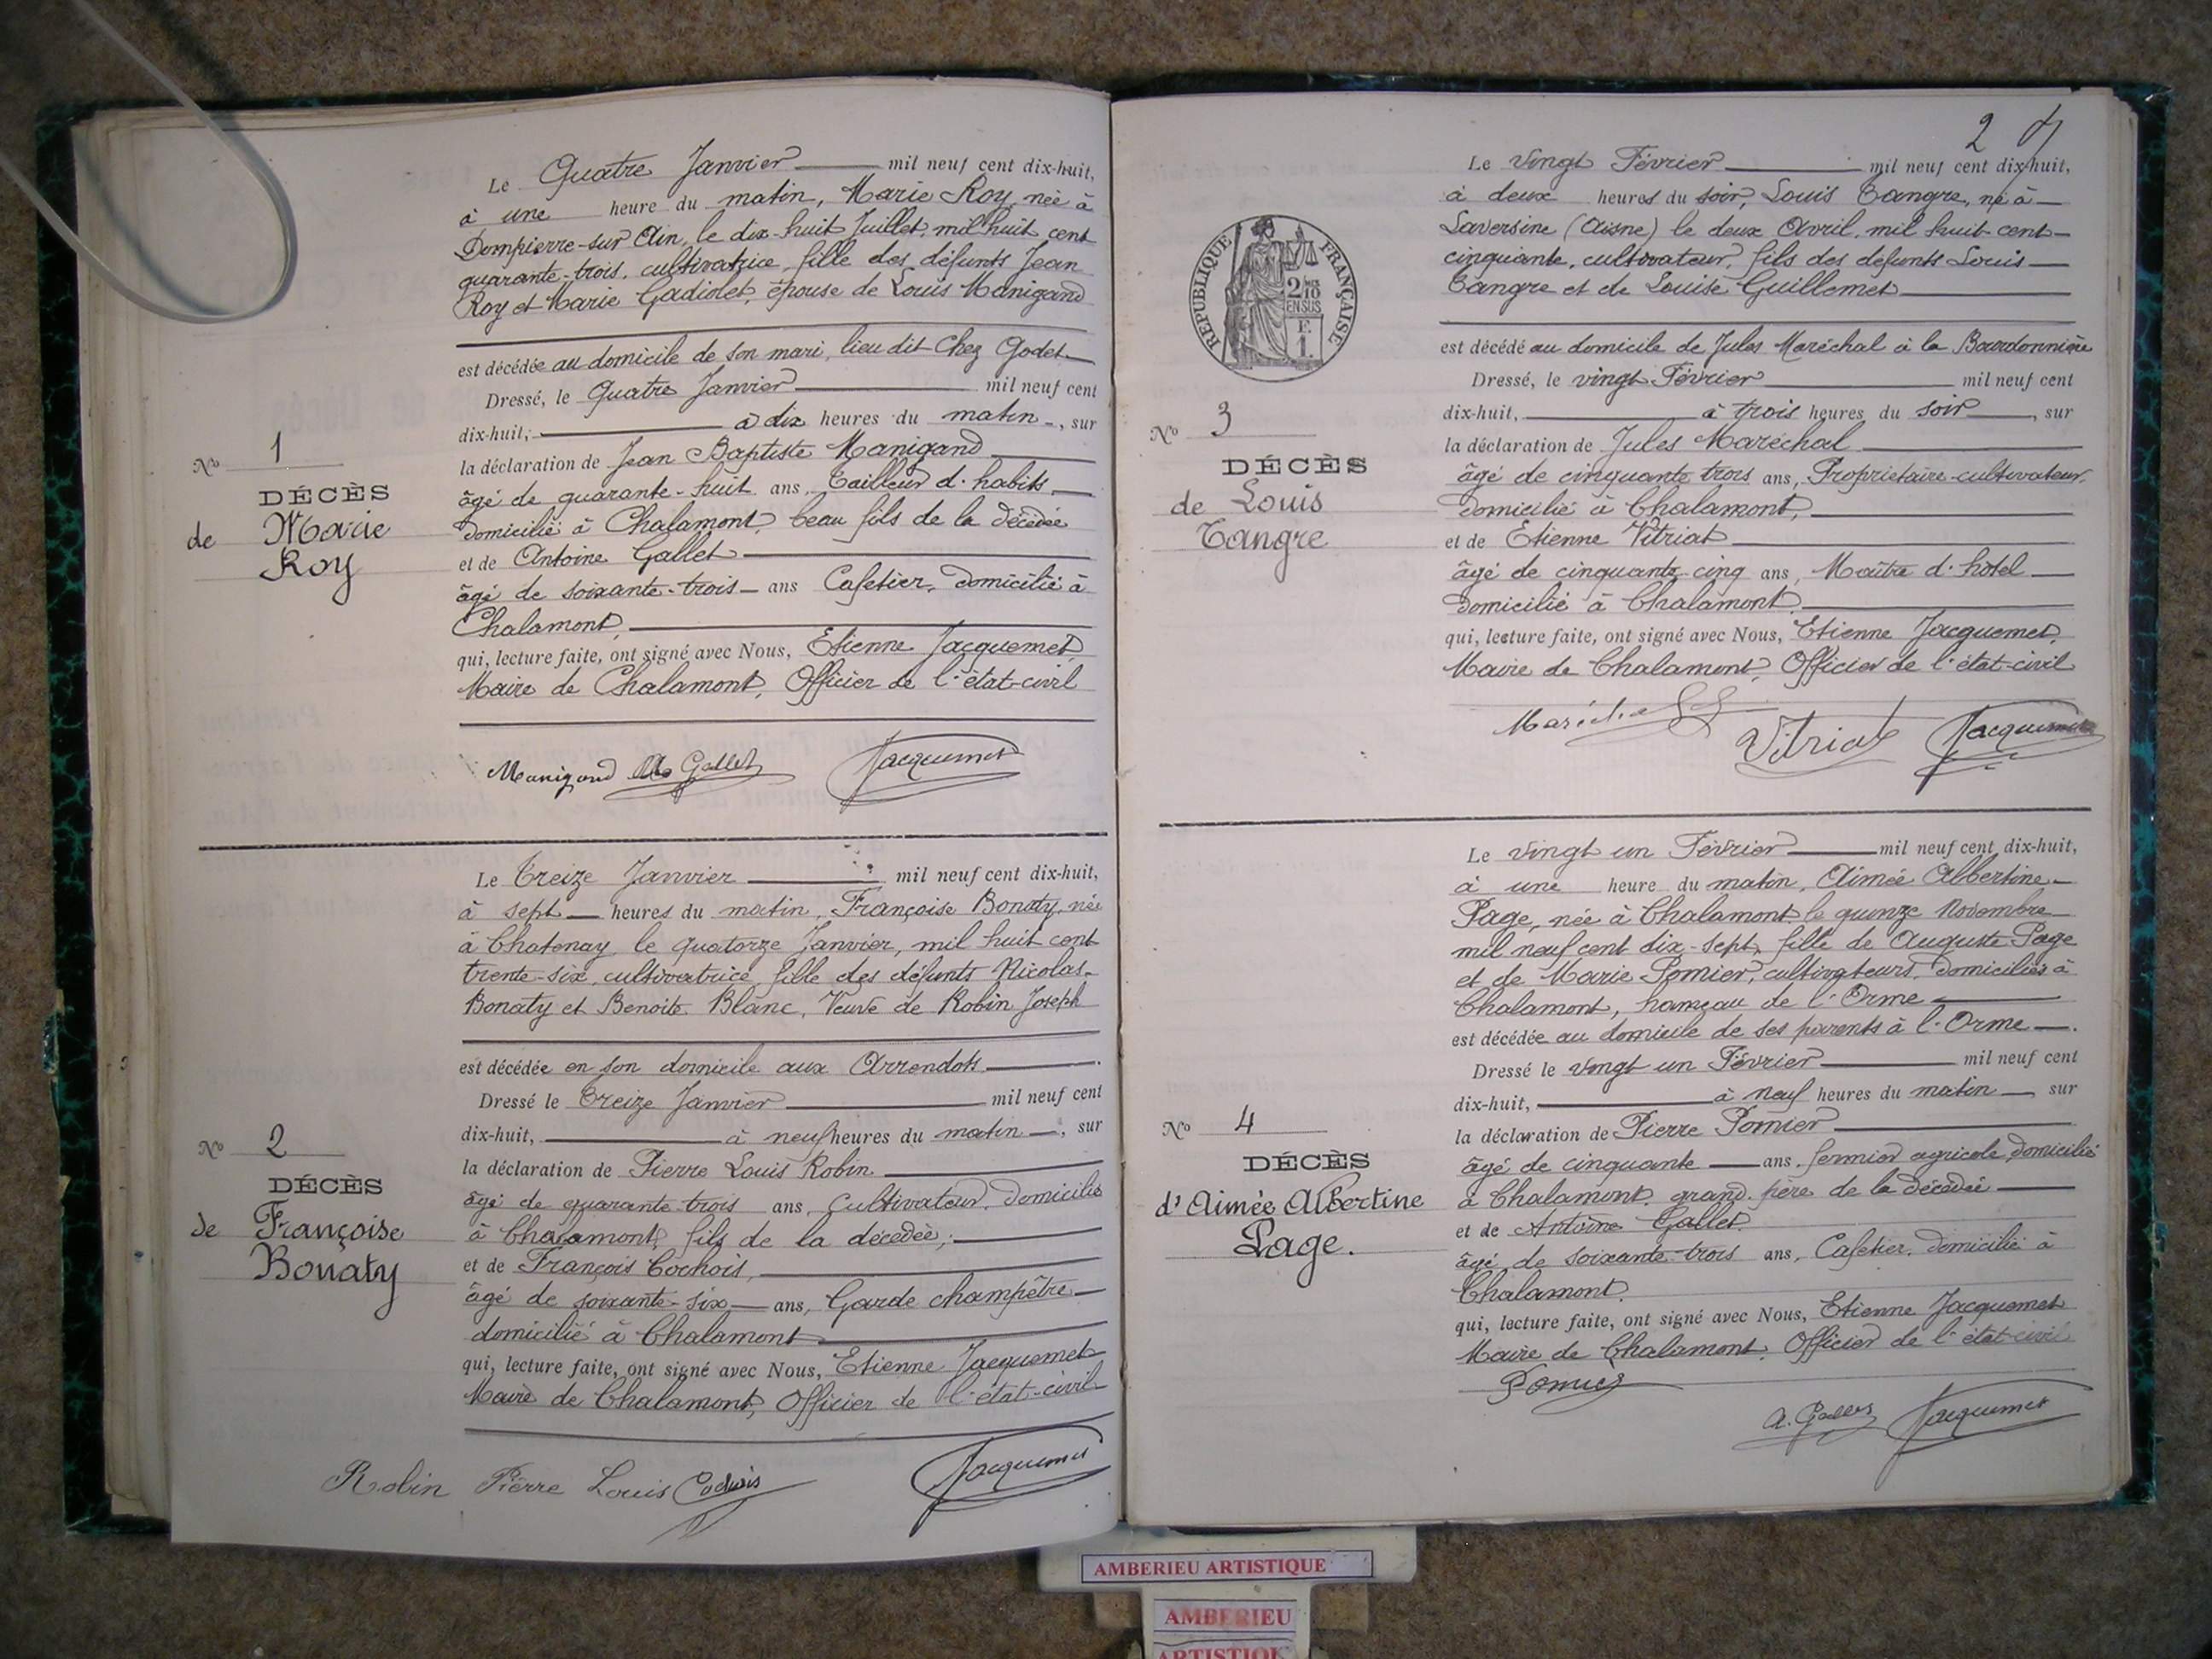 Le Quatre Janvier mil neuf cent dix-huit,
à une heure du matin, Marie Roy, née à
Dompierre-sur Ain, le dix-huit Juillet, mil huit cent
quarante-trois, cultivatrice, fille des défunts Jean
Roy et Marie Gadiolet, épouse de Louis Manigand
est décédée au domicile de son mari, lieu dit Chez Godet
Dressé, le Quatre Janvier mil neuf cent
dix-huit, à dix heures du matin, sur
la déclaration de Jean Baptiste Manigand
âgé de quarante-huit ans, Tailleur d'habits
domicilié à Chalamont, beau fils de la décédée
et de Antoine Gallet
âgé de soixante-trois ans Cafetier, domicilié à
Chalamont,
qui, lecture faite, ont signé avec Nous, Etienne Jacquemet,
Maire de Chalamont, Officier de l'état-civil
Manigand Gallet Jacquemet
No 1
DÉCÈS
de Marie
Roy
Le Treize Janvier mil neuf cent dix-huit,
à sept heures du matin, Françoise Bonaty, née
à Chatenay, le quatorze Janvier, mil huit cent
trente-six, cultivatrice, fille des défunts Nicolas
Bonaty et Benoite Blanc, Veuve de Robin Joseph
est décédée en son domicile aux Arrendots
Dressé le Treize Janvier mil neuf cent
dix-huit, à neuf heures du matin, sur
la déclaration de Pierre Louis Robin
âgé de quarante-trois ans, Cultivateur, domicilié
à Chalamont, fils de la décédée,
et de François Cochois,
âgé de soixante-six ans, Garde champêtre
domicilié à Chalamont
qui, lecture faite, ont signé avec Nous, Etienne Jacquemet
Maire de Chalamont, Officier de l'état-civil
Robin Pierre Louis Cochois Jacquemet
No 2
DÉCÈS
de Françoise
Bonaty
2
Le vingt Février mil neuf cent dix-huit,
à deux heures du soir, Louis Tangre, né à
Laversine (Aisne) le deux Avril, mil huit cent
cinquante, cultivateur, fils des défunts Louis
Tangre et de Louise Guillemet
est décédé au domicile de Jules Maréchal à la Bourdonnière
Dressé, le vingt Février mil neuf cent
dix-huit, à trois heures du soir, sur
la déclaration de Jules Maréchal
âgé de cinquante trois ans, Propriétaire-cultivateur,
domicilié à Chalamont,
et de Etienne Vitriat
âgé de cinquante-cinq ans, Maître d'hotel
domicilié à Chalamont,
qui, lecture faite, ont signé avec Nous, Etienne Jacquemet,
Maire de Chalamont, Officier de l'état-civil
Maréchal Vitriat Jacquemet
RÉPUBLIQUE FRANÇAISE
2/10
EN SUS
F.
1.
No 3
DÉCÈS
de Louis
Tangre
Le vingt un Février mil neuf cent dix-huit,
à une heure du matin, Aimée Albertine
Page, née à Chalamont le quinze Novembre
mil neuf cent dix-sept, fille de Auguste Page
et de Marie Pomier, cultivateurs, domiciliés à
Chalamont, hameau de l'Orme
est décédée au domicile de ses parents à l'Orme.
Dressé le vingt un Février mil neuf cent
dix-huit, à neuf heures du matin, sur
la déclaration de Pierre Pomier
âgé de cinquante ans, fermier agricole, domicilié
à Chalamont, grand-père de la décédée
et de Antoine Gallet
âgé de soixante-trois ans, Cafetier, domicilié à
Chalamont.
qui, lecture faite, ont signé avec Nous, Etienne Jacquemet
Maire de Chalamont, Officier de l'état-civil
Pomier
A. Gallet Jacquemet
No 4
DÉCÈS
d'Aimée Albertine
Page.
AMBERIEU ARTISTIQUE
AMBERIEU
ARTISTIQUE